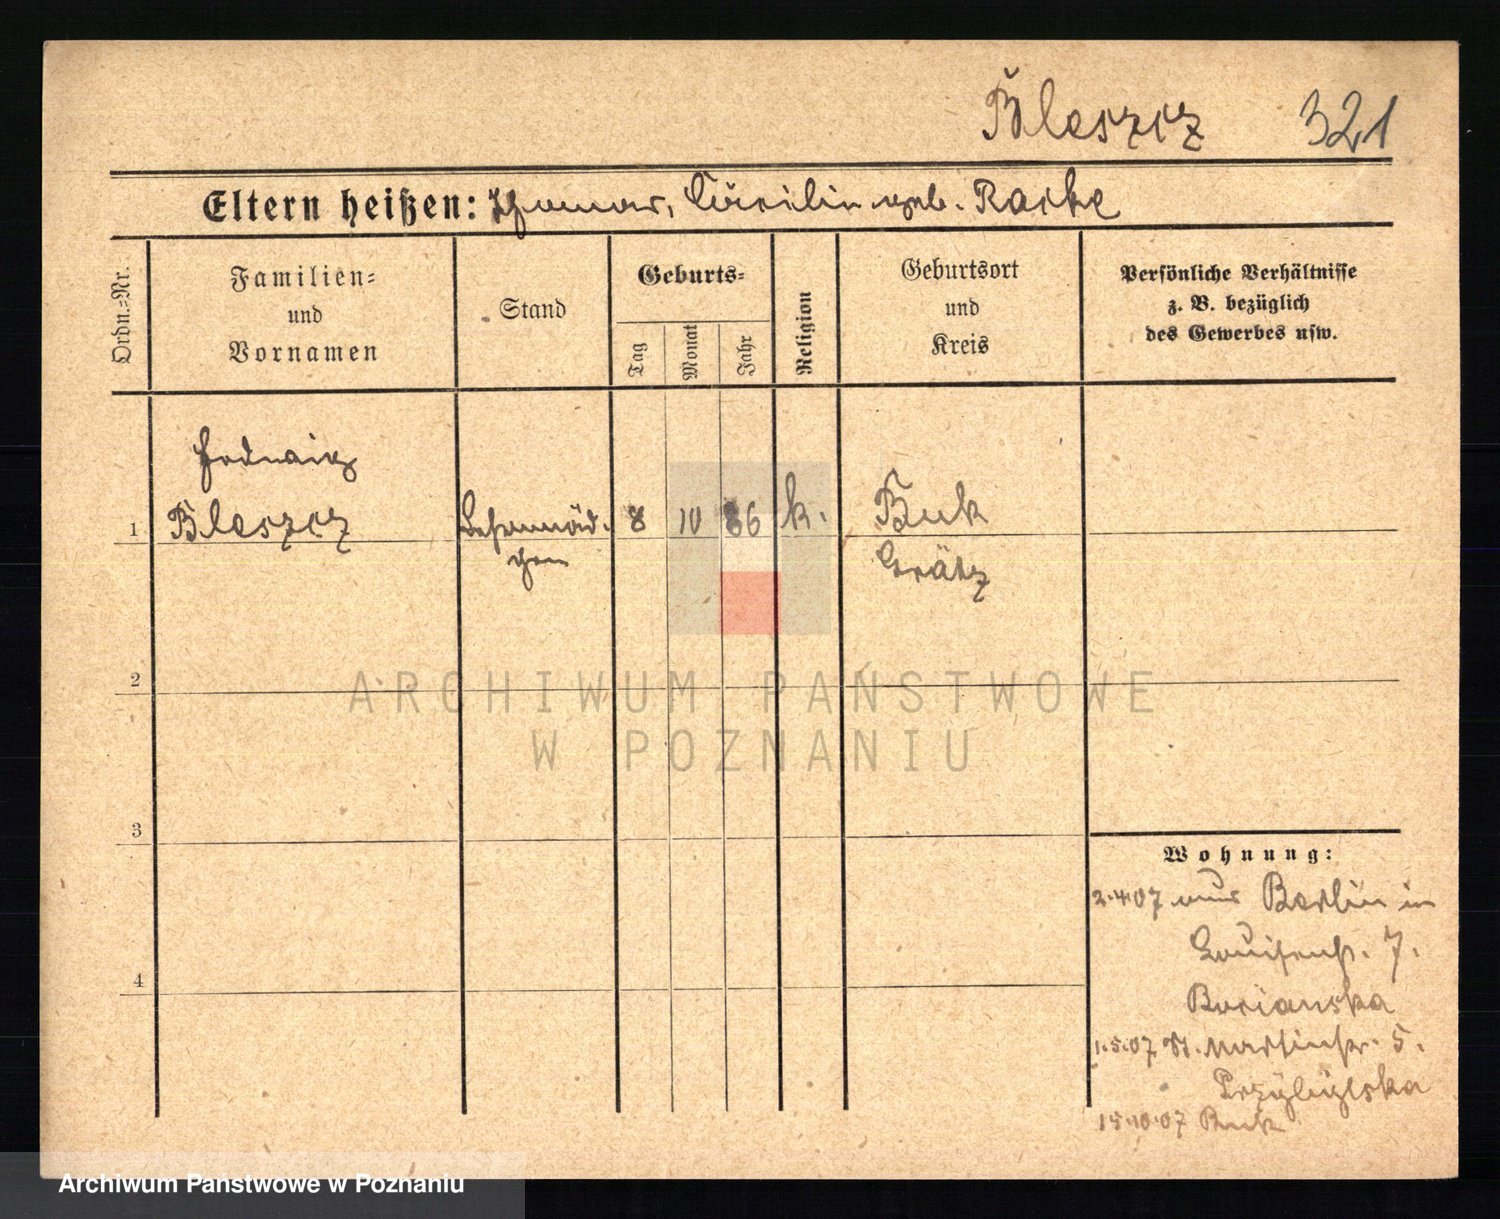 Bleszcz 321
Eltern heißen: Thomas, Cäcilie geb. Raske
Ordn.-Nr.
Familien-
und
Vornamen
Stand
Geburts-
Tag
Monat
Jahr
Religion
Geburtsort
und
Kreis
Persönliche Verhältnisse
z. B. bezüglich
des Gewerbes usw.
Hedwig
1 Bleszcz Lehrmäd- 8 10 86 k. Buk
chen Grätz
2
3
4
Wohnung:
2.4.07 aus Berlin in
Louisenstr. 7.
1.5.07 St. Martinstr. 5.
15.10.07 Buk
ARCHIWUM PAŃSTWOWE
W POZNANIU
Archiwum Państwowe w Poznaniu